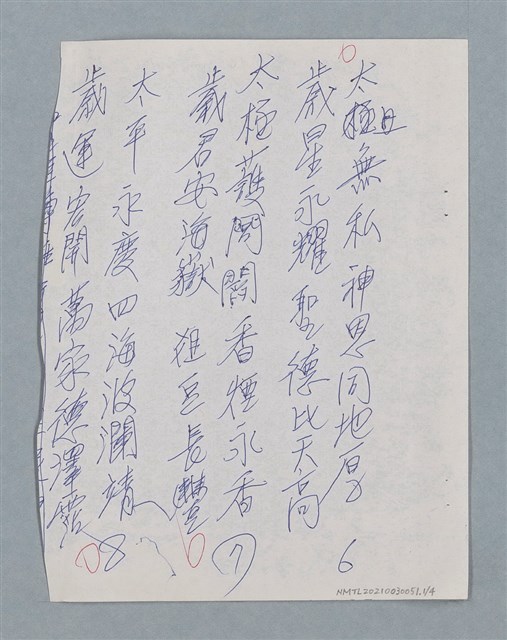 太極無私 神恩同地厚
歲星永耀 聖德比天高
6
太極護閭閻 香煙永香
歲君安海嶽 俎豆長豐
(7)
太平永慶四海波瀾靖
歲運宏開萬家德澤霑
8
NMTL20210030051.1/4